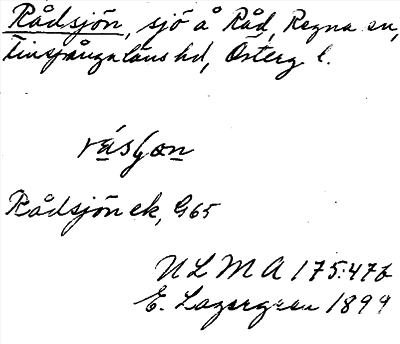 Rådsjön, sjö å Råd, Regna sn,
Finspångaläns hd, Österg. l.
Rådsjön ek, G65
ULMA 175:476
E. Lagergren 1899